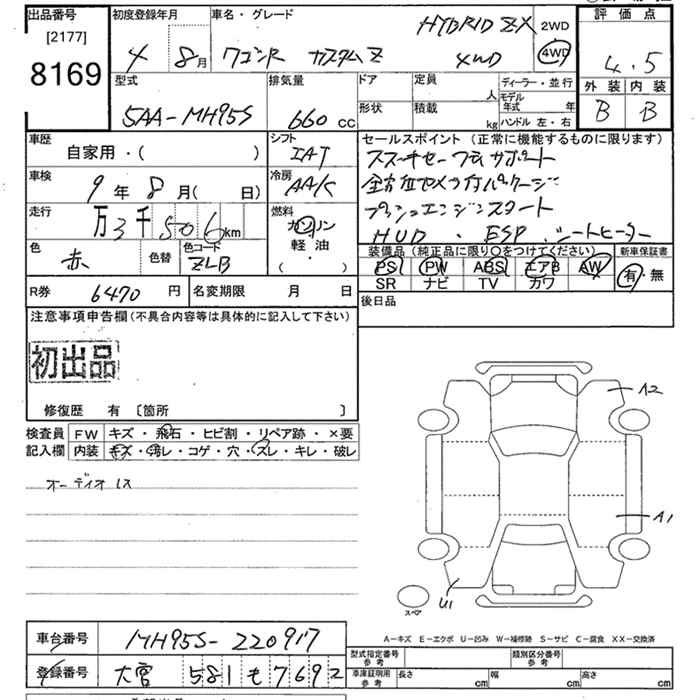 出品番号
[2177]
8169
初度登録年月
4 年 8月
車名・グレード
HYBRID ZX
ワゴンR カスタムZ 4WD
2WD
4WD
評価点
4.5
外装 内装
B B
型式
5AA-MH95S
排気量
660 cc
ドア
形状
定員
人
積載
kg
ディーラー・並行
モデル年式 年
ハンドル 左・右
車歴
自家用・( )
シフト
IAT
車検
9年 8月( 日)
冷房
AAC
走行
万3千506km
燃料
ガソリン
軽油
( )
色
赤
色替
色コード
ZLB
セールスポイント(正常に機能するものに限ります)
スズキセーフティサポート
全方位カメラ付パッケージ
プッシュエンジンスタート
HUD ・ ESP シートヒーター
装備品(純正品に限り○をつけてください)
新車保証書
PS PW ABS エアB AW
有・無
SR ナビ TV カワ
R券 6470円
名変期限 月 日
後日品
注意事項申告欄(不具合内容等は具体的に記入して下さい)
初出品
修復歴 有 [箇所 ]
検査員
記入欄
FW キズ・飛石・ヒビ割・リペア跡・×要
内装 キズ・汚レ・コゲ・穴・スレ・キレ・破レ
オーディオレス
A2
A1
U1
スペア
A-キズ E-エクボ U-凹み W-補修跡 S-サビ C-腐食 XX-交換済
車台番号 MH95S-220917
登録番号 大宮 581 も 7692
型式指定番号
参考
類別区分番号
参考
車庫証明用
参考
長さ cm
幅 cm
高さ cm